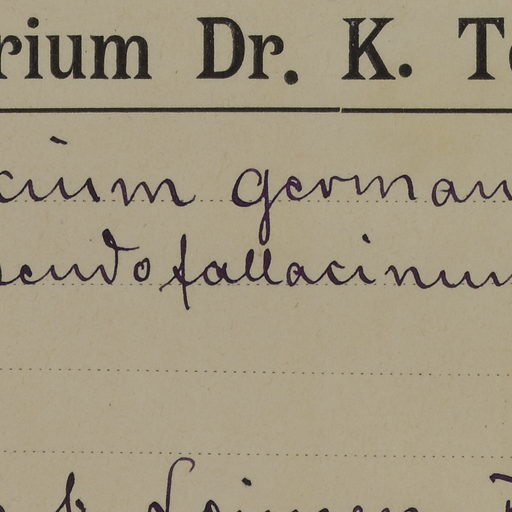 rium Dr. K. To
cium german
seudofallacinum